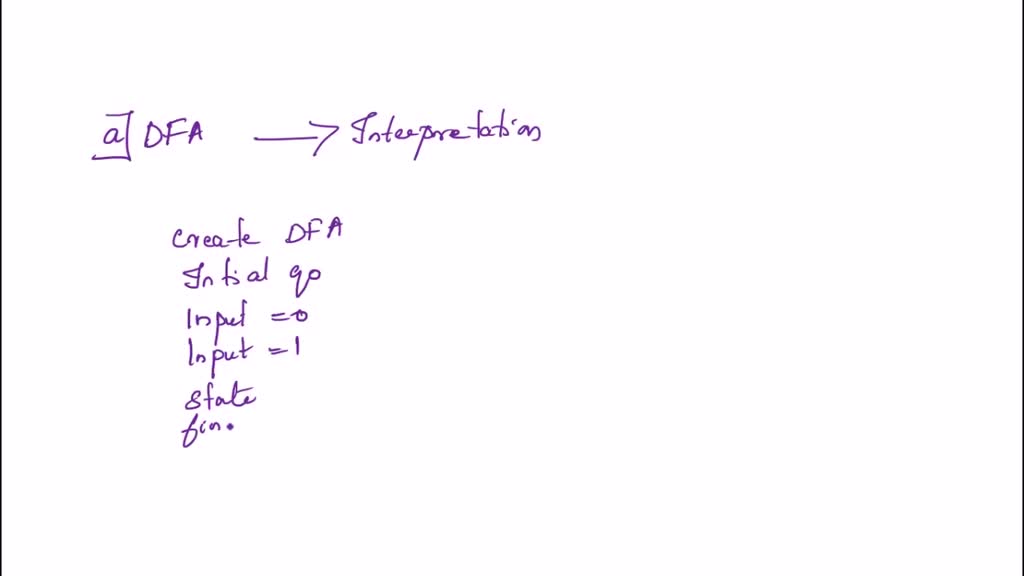 a] DFA → Interpretation
Create DFA
Intial q0
Input = 0
Input = 1
state
fin.